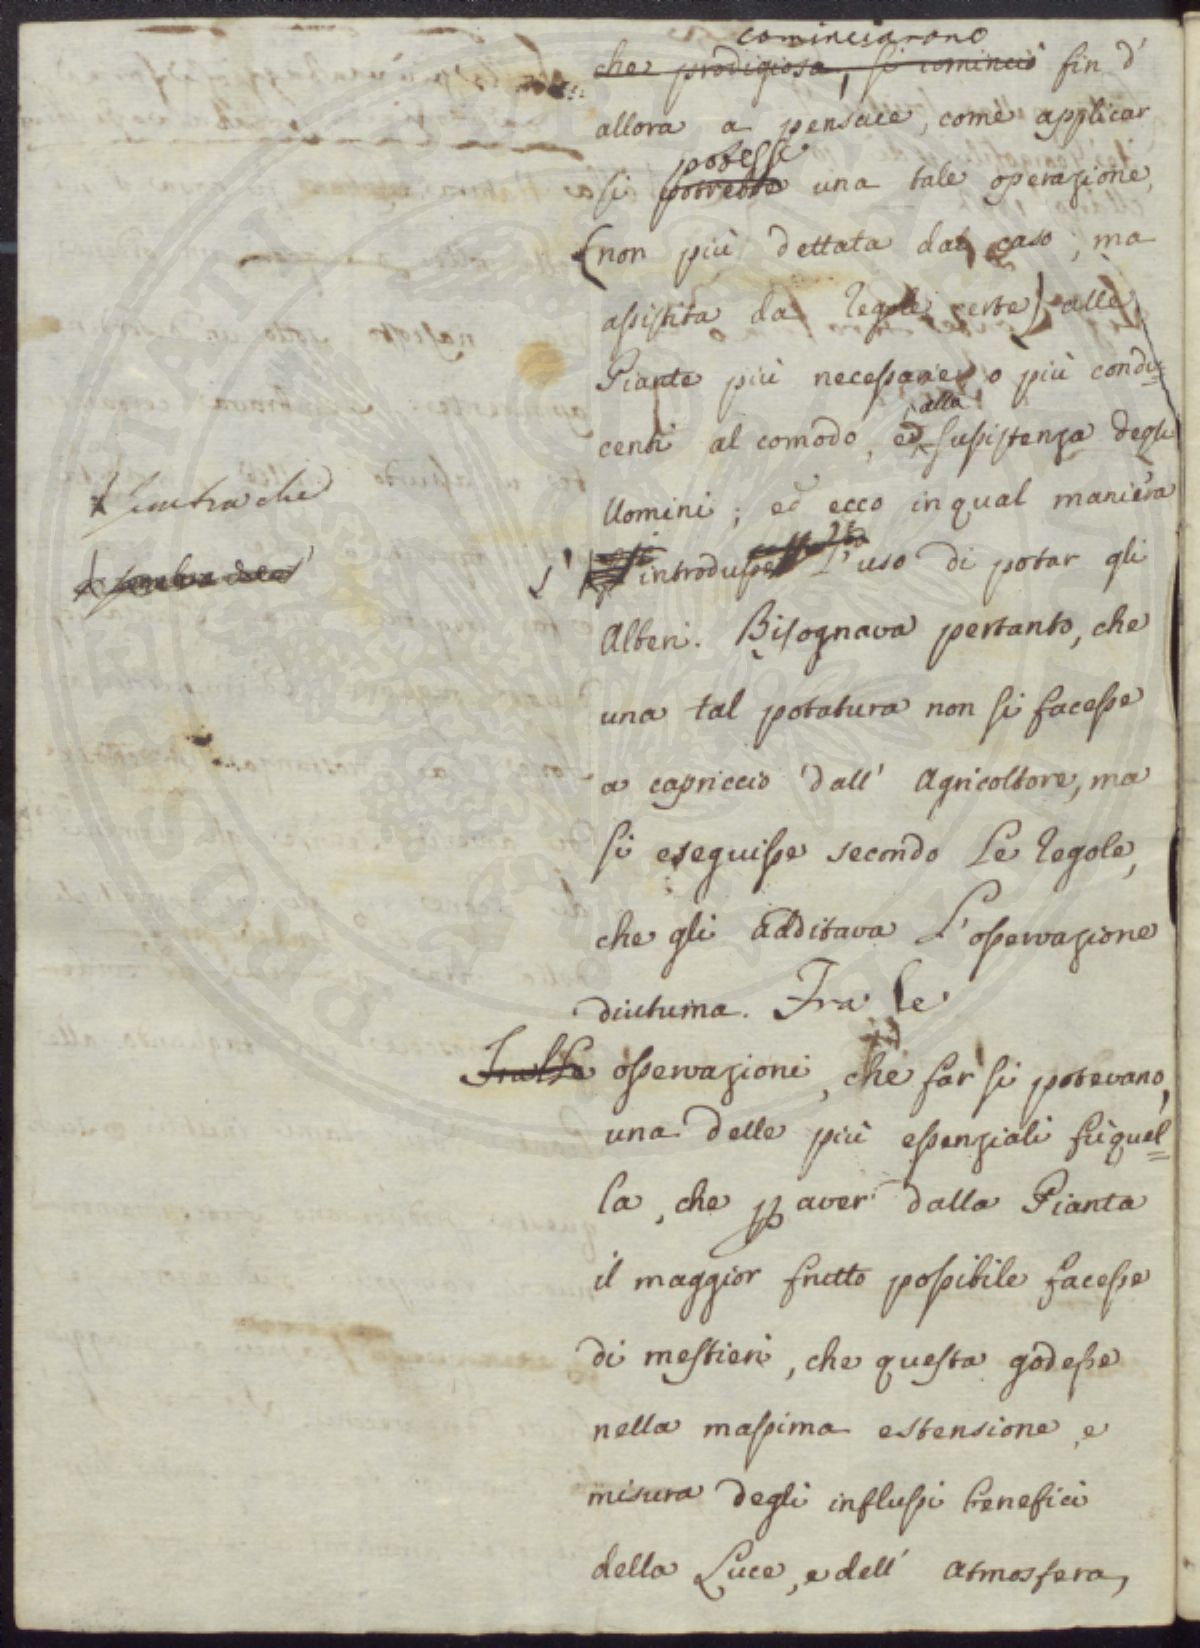 cominciarono
che prodigiosa, si cominciò fin d'
allora a pensare, come applicar
potesse
si potrebbe una tale operazione,
(non più dettata dal caso, ma
assistita da regole certe) alle
Piante più necessarie, o più condu=
alla
centi al comodo, ed sussistenza degli
Uomini; ed ecco in qual maniera
s' introdusse l'uso di potar gli
Alberi. Bisognava pertanto, che
una tal potatura non si facesse
a capriccio dall' Agricoltore, ma
si eseguisse secondo le regole,
che gli additava l'osservazione
diuturna. Fra le
Fralle osservazioni, che far si potevano,
una delle più essenziali fù quel=
la, che p aver dalla Pianta
il maggior frutto possibile facesse
di mestieri, che questa godesse
nella massima estensione, e
misura degli influssi benefici
della Luce, e dell' Atmosfera,
che